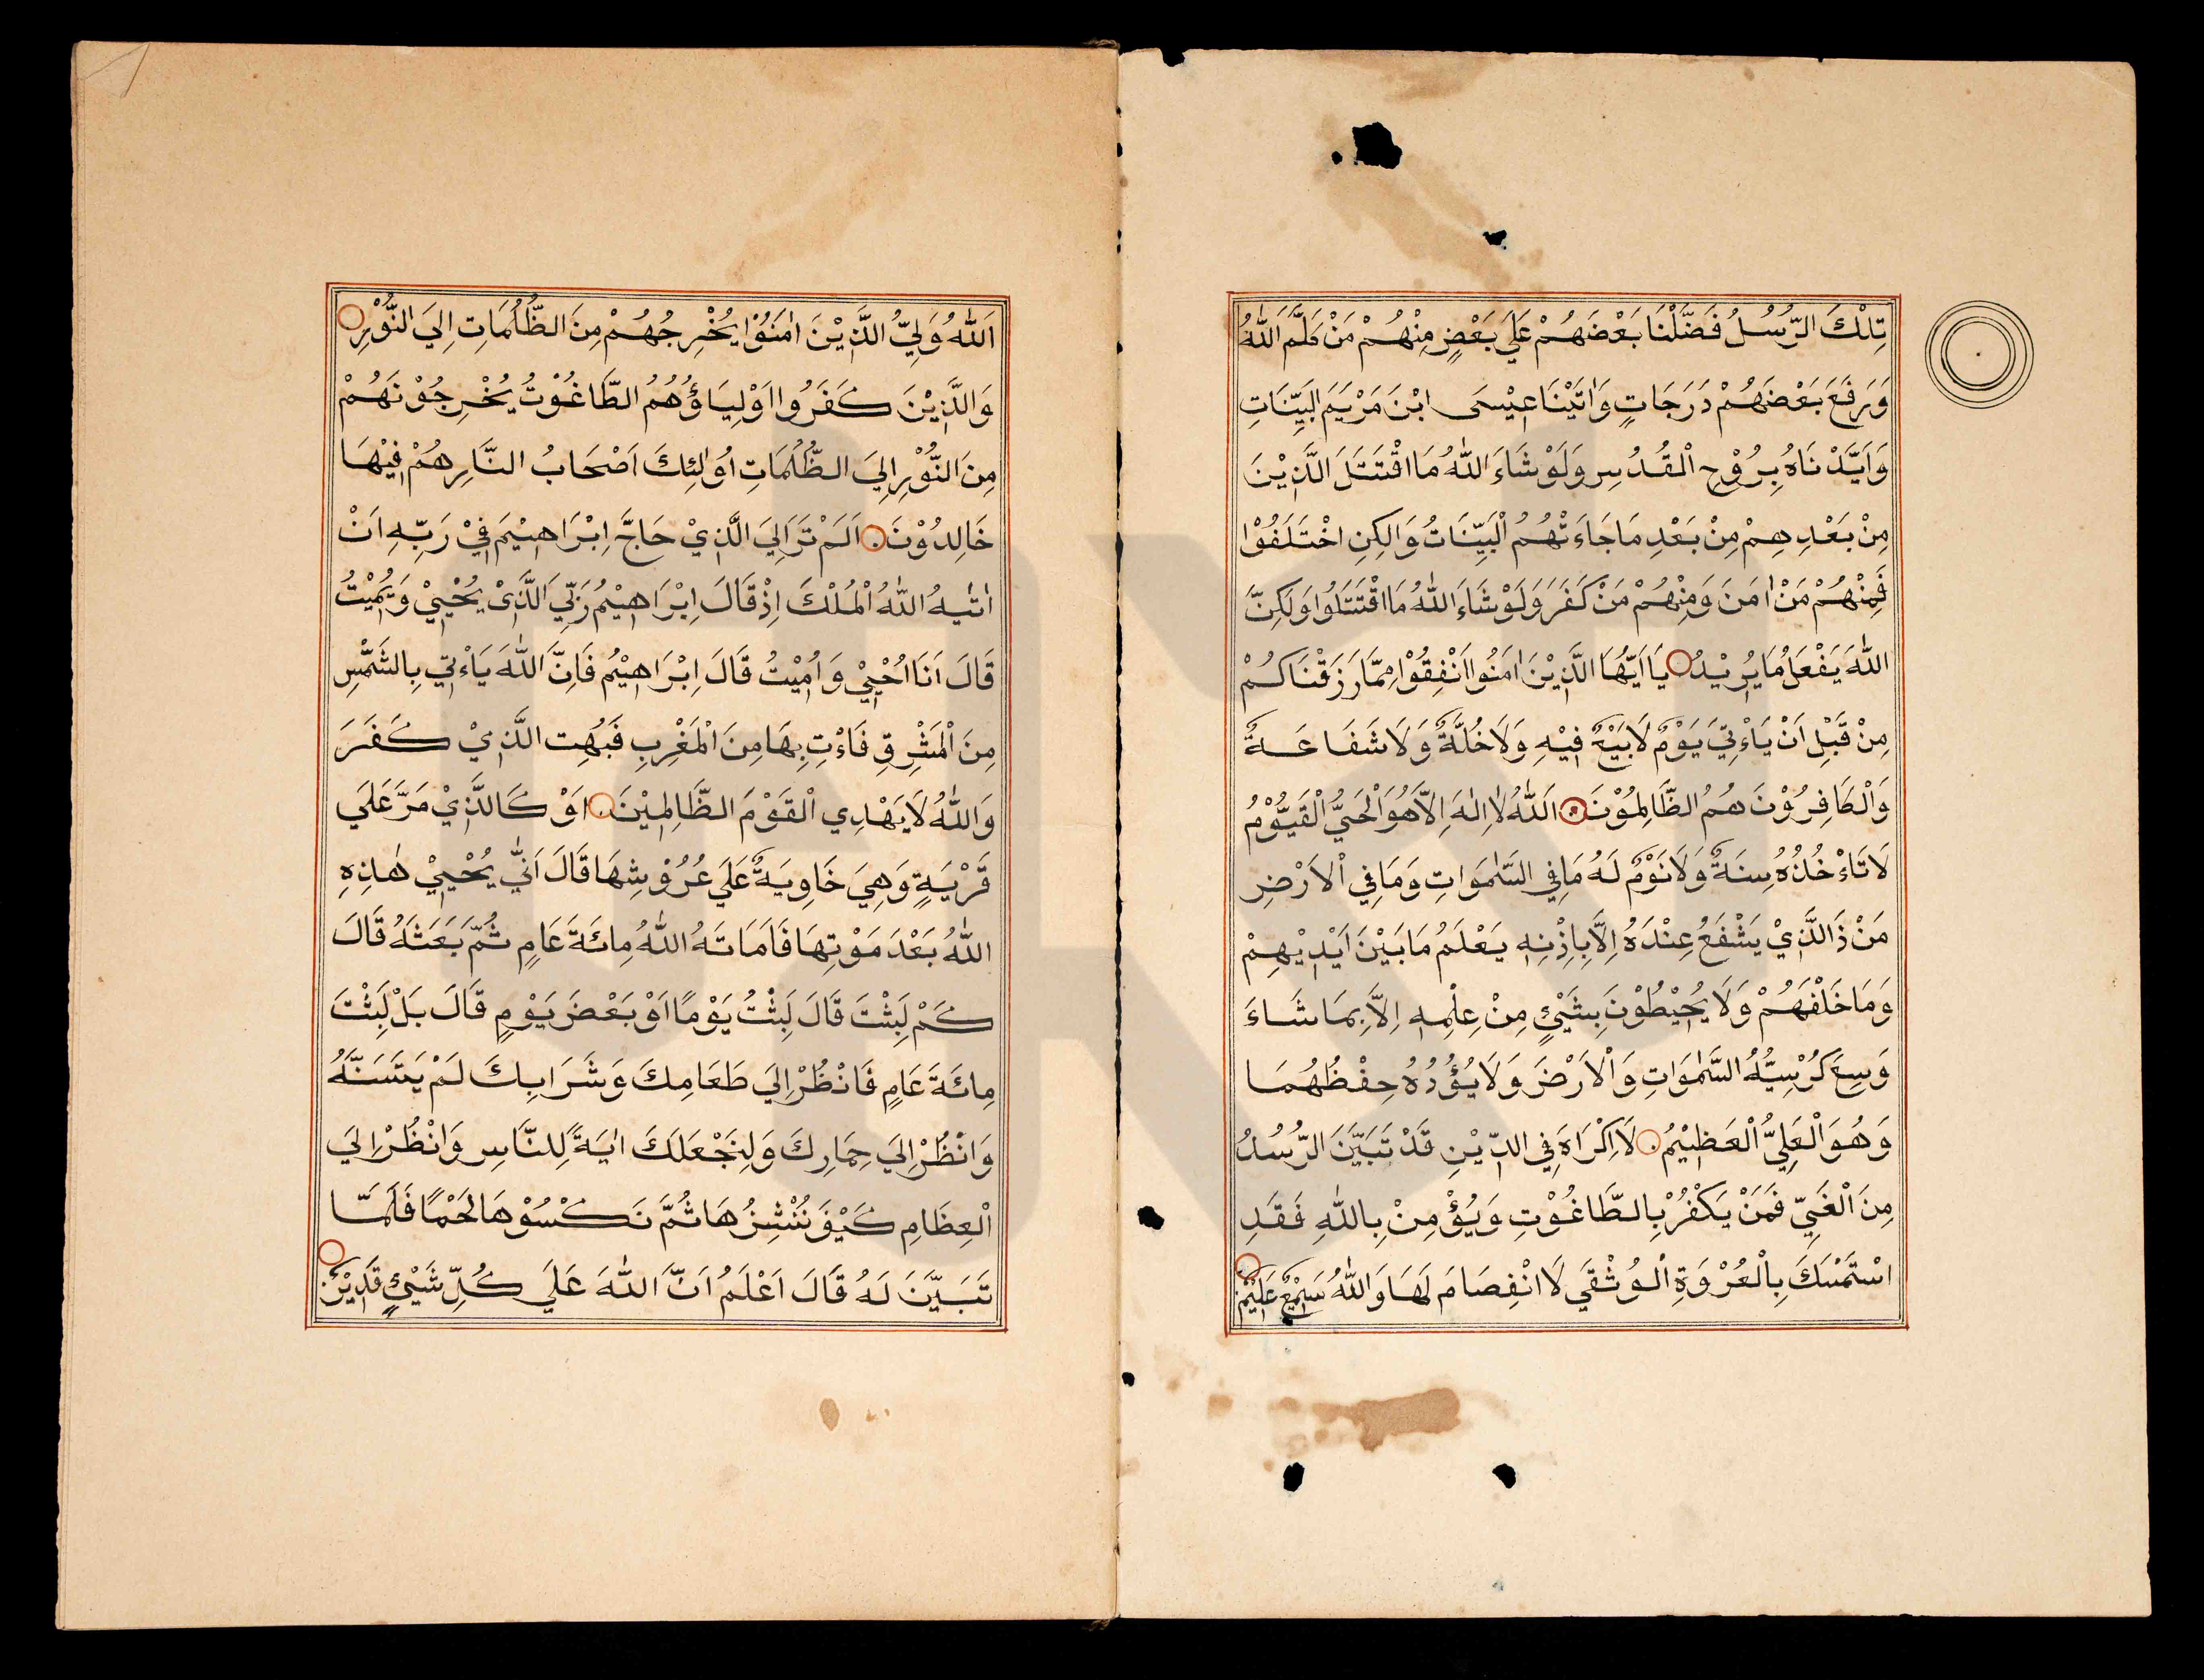 تِلْكَ الرُّسُلُ فَضَّلْنَا بَعْضَهُمْ عَلَي بَعْضٍ مِنْهُمْ مَنْ كَلَّمَ اللّٰهُ
وَرَفَعَ بَعْضَهُمْ دَرَجَاتٍ وَاٰتَيْنَا عِيْسَى ابْنَ مَرْيَمَ البَيِّنَاتِ
وَاَيَّدْنَاهُ بِرُوْحِ الْقُدُسِ وَلَوْ شَاءَ اللّٰهُ مَا اقْتَتَلَ الَّذِيْنَ
مِنْ بَعْدِهِمْ مِنْ بَعْدِ مَا جَاءَتْهُمُ الْبَيِّنَاتُ وَالكِنِ اخْتَلَفُوْا
فَمِنْهُمْ مَنْ اٰمَنَ وَمِنْهُمْ مَنْ كَفَرَ وَلَوْ شَاءَ اللّٰهُ مَا اقْتَتَلُوا وَلَكِنَّ
اللّٰهَ يَفْعَلُ مَا يُرِيْدُ يَا اَيُّهَا الَّذِيْنَ اٰمَنُوا اَنْفِقُوْا مِمَّا رَزَقْنَاكُمْ
مِنْ قَبْلِ اَنْ يَاءْتِيَ يَوْمٌ لَا بَيْعٌ فِيْهِ وَلَا خُلَّةٌ وَلَا شَفَاعَةٌ
وَالْكَافِرُوْنَ هُمُ الظَّالِمُوْنَ اَللّٰهُ لَا اِلٰهَ اِلَّا هُوَ الْحَيُّ الْقَيُّوْمُ
لَا تَاءْخُذُهُ سِنَةٌ وَلَا نَوْمٌ لَهُ مَا فِي السَّمٰوَاتِ وَمَا فِي الْاَرْضِ
مَنْ ذَا الَّذِيْ يَشْفَعُ عِنْدَهُ اِلَّا بِاِذْنِهِ يَعْلَمُ مَا بَيْنَ اَيْدِيْهِمْ
وَمَا خَلْفَهُمْ وَلَا يُحِيْطُوْنَ بِشَيْئٍ مِنْ عِلْمِهِ اِلَّا بِمَا شَاءَ
وَسِعَ كُرْسِيُّهُ السَّمٰوَاتِ وَالْاَرْضَ وَلَا يَؤُدُهُ حِفْظُهُمَا
وَهُوَ الْعَلِيُّ الْعَظِيْمُ لَا اِكْرَاهَ فِي الدِّيْنِ قَدْ تَبَيَّنَ الرُّسُلُ
مِنَ الْغَيِّ فَمَنْ يَكْفُرْ بِالطَّاغُوْتِ وَيُؤْمِنْ بِاللّٰهِ فَقَدِ
اسْتَمْسَكَ بِالْعُرْوَةِ الْوُثْقَي لَا انْفِصَامَ لَهَا وَاللّٰهُ سَمِيْعٌ عَلِيْمٌ
اَللّٰهُ وَلِيُّ الَّذِيْنَ اٰمَنُوْا يُخْرِجُهُمْ مِنَ الظُّلُمَاتِ اِلَيَ النُّوْرِ
وَالَّذِيْنَ كَفَرُوا اَوْلِيَاؤُهُمُ الطَّاغُوْتُ يُخْرِجُوْنَهُمْ
مِنَ النُّوْرِ اِلَيَ الظُّلُمَاتِ اُولٰئِكَ اَصْحَابُ النَّارِ هُمْ فِيْهَا
خَالِدُوْنَ اَلَمْ تَرَ اِلَيَ الَّذِيْ حَاجَّ اِبْرَاهِيْمَ فِيْ رَبِّهِ اَنْ
اٰتٰيهُ اللّٰهُ الْمُلْكَ اِذْ قَالَ اِبْرَاهِيْمُ رَبِّيَ الَّذِيْ يُحْيِيْ وَيُمِيْتُ
قَالَ اَنَا اُحْيِيْ وَاُمِيْتُ قَالَ اِبْرَاهِيْمُ فَاِنَّ اللّٰهَ يَاءْتِيْ بِالشَّمْسِ
مِنَ الْمَشْرِقِ فَاءْتِ بِهَا مِنَ الْمَغْرِبِ فَبُهِتَ الَّذِيْ كَفَرَ
وَاللّٰهُ لَا يَهْدِي الْقَوْمَ الظَّالِمِيْنَ اَوْ كَالَّذِيْ مَرَّ عَلَي
قَرْيَةٍ وَهِيَ خَاوِيَةٌ عَلَي عُرُوْشِهَا قَالَ اَنّٰي يُحْيِيْ هٰذِهِ
اللّٰهُ بَعْدَ مَوْتِهَا فَاَمَاتَهُ اللّٰهُ مِائَةَ عَامٍ ثُمَّ بَعَثَهُ قَالَ
كَمْ لَبِثْتَ قَالَ لَبِثْتُ يَوْمًا اَوْ بَعْضَ يَوْمٍ قَالَ بَلْ لَبِثْتَ
مِائَةَ عَامٍ فَانْظُرْ اِلَي طَعَامِكَ وَشَرَابِكَ لَمْ يَتَسَنَّهْ
وَانْظُرْ اِلَي حِمَارِكَ وَلِنَجْعَلَكَ اٰيَةً لِلنَّاسِ وَانْظُرْ اِلَي
الْعِظَامِ كَيْفَ نُنْشِزُهَا ثُمَّ نَكْسُوْهَا لَحْمًا فَلَمَّا
تَبَيَّنَ لَهُ قَالَ اَعْلَمُ اَنَّ اللّٰهَ عَلَي كُلِّ شَيْئٍ قَدِيْرٌ